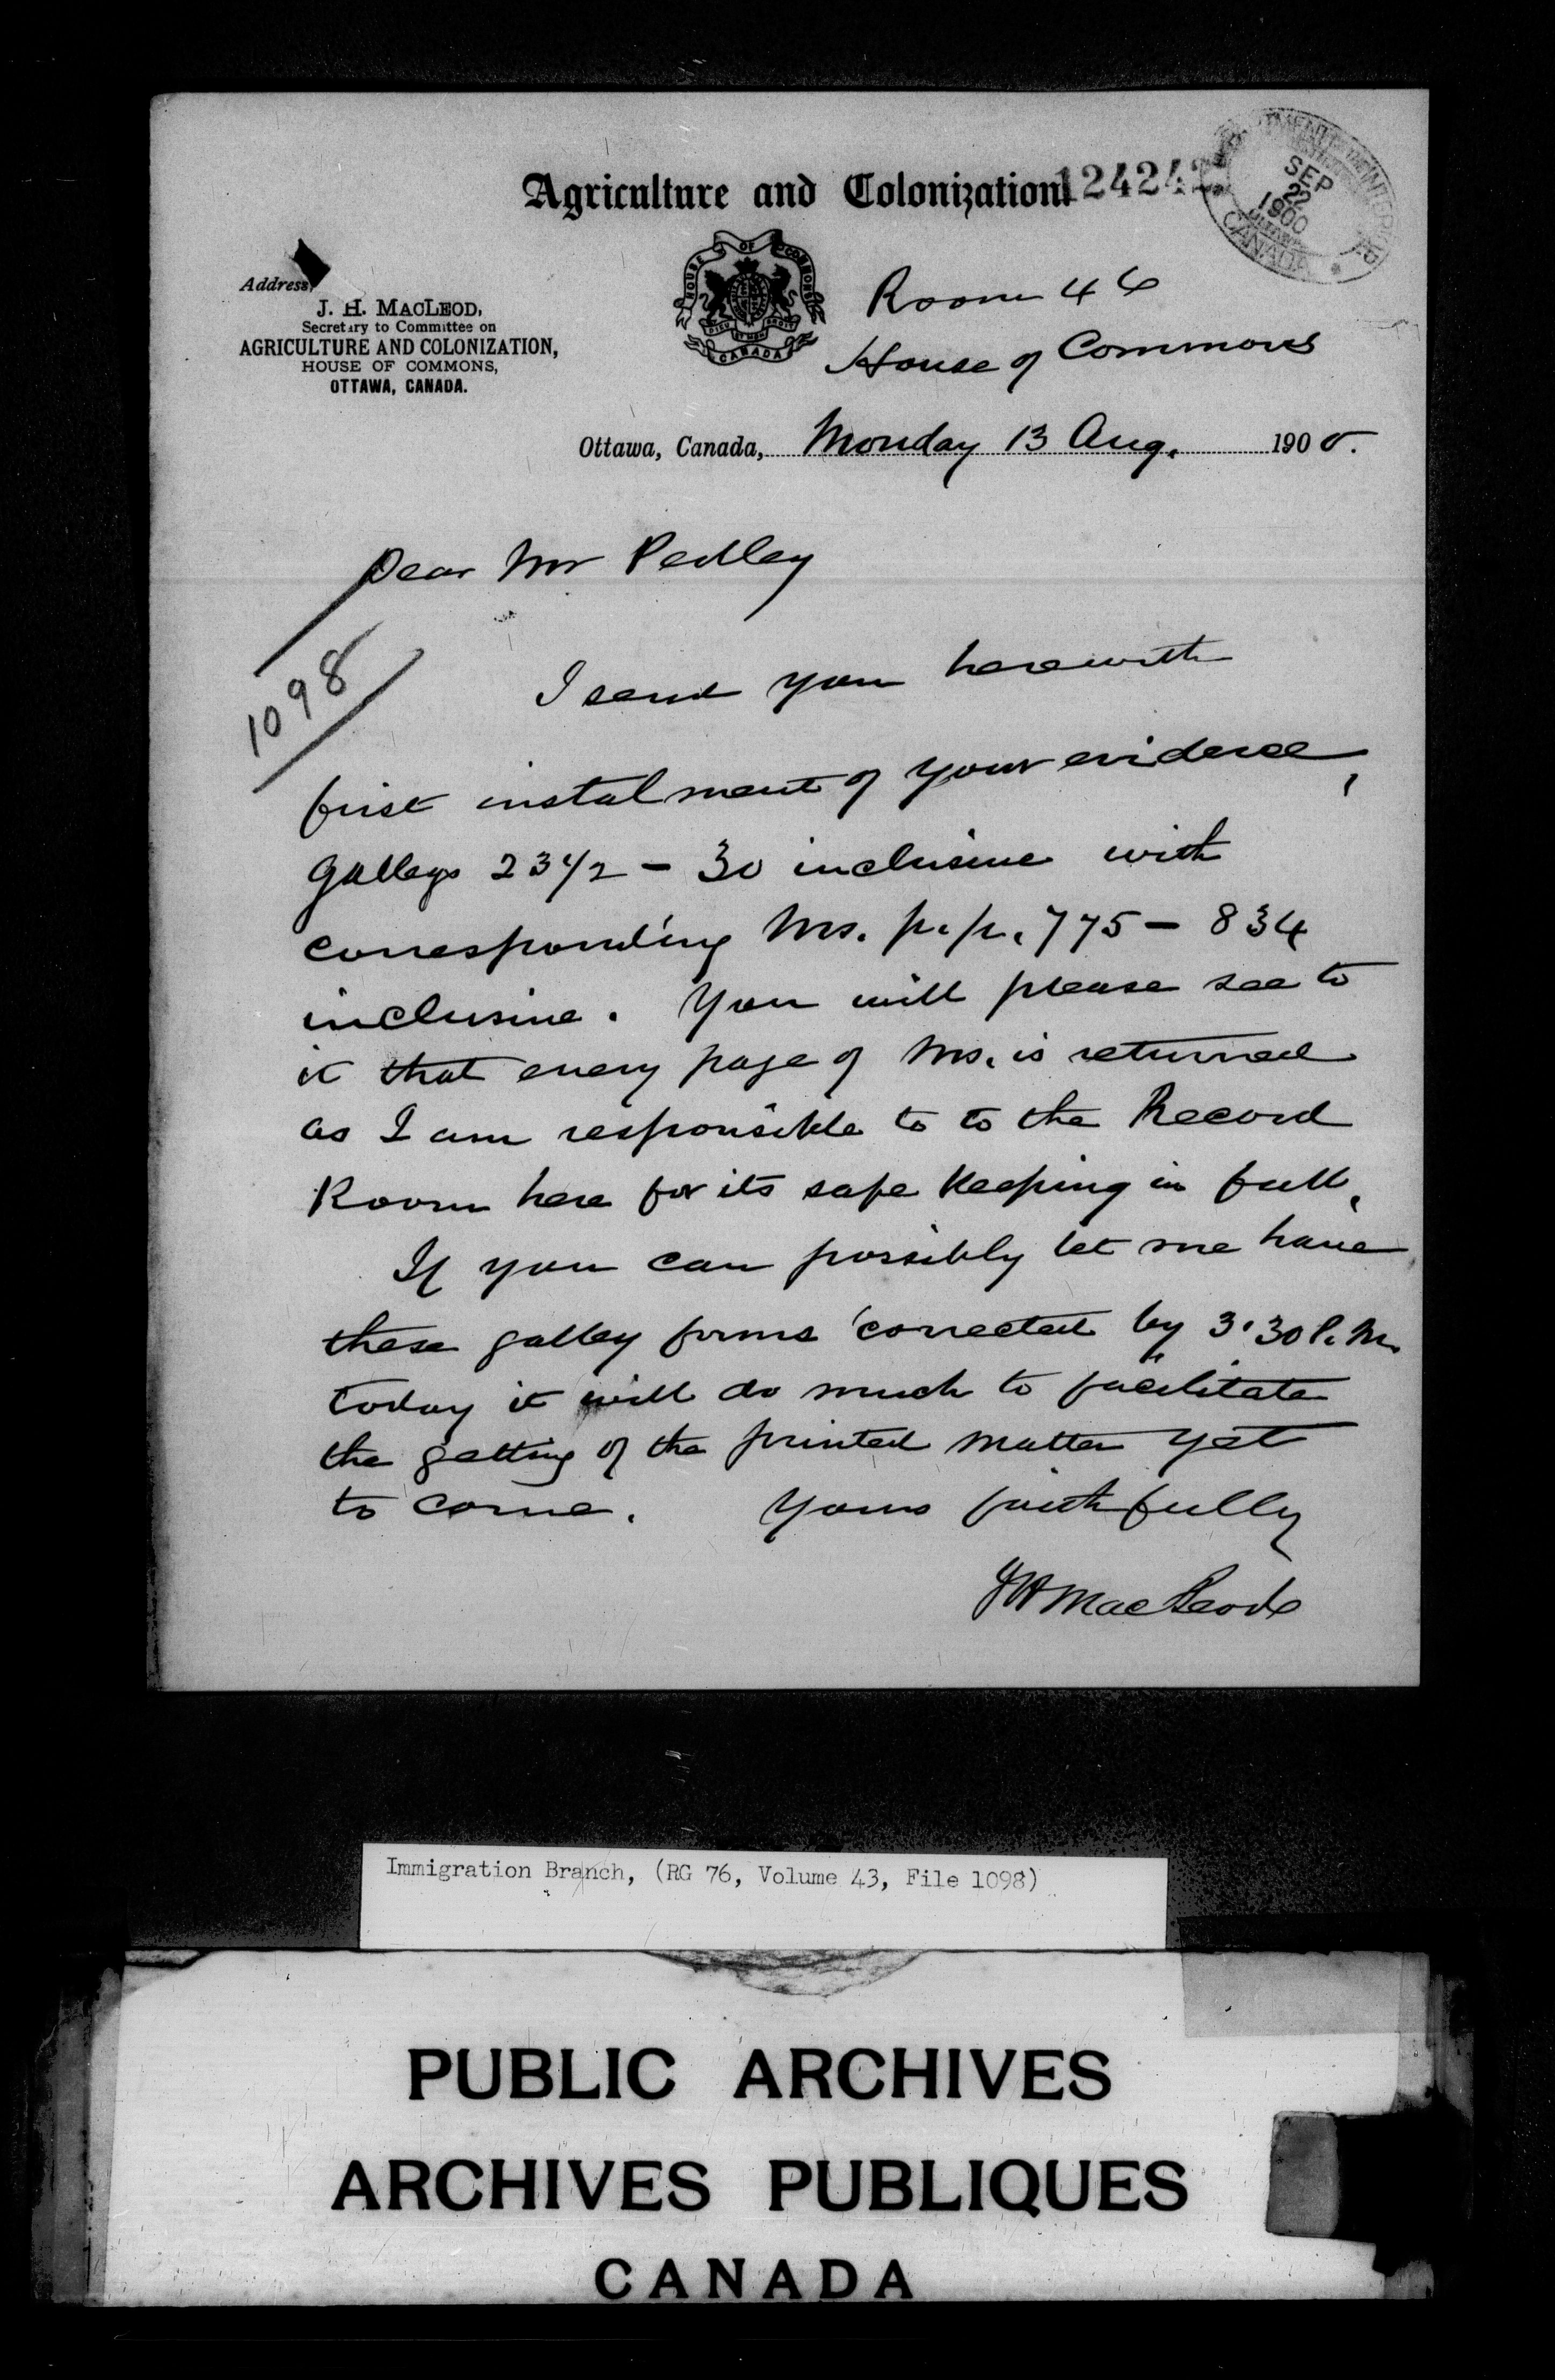 Agriculture and Colonization.
124242
DEPARTMENT OF THE INTERIOR
SEP
22
1900
OTTAWA
CANADA
HOUSE OF COMMONS
DIEU ET MON DROIT
CANADA
Address,
J. H. MACLEOD,
Secretary to Committee on
AGRICULTURE AND COLONIZATION,
HOUSE OF COMMONS,
OTTAWA, CANADA.
Room 46
House of Commons
Ottawa, Canada, Monday 13 Aug. 1900.
Dear Mr Pedley
1098
I send you herewith
first instalment of your evidence,
galleys 23½ - 30 inclusive with
corresponding Ms. p.p. 775 - 834
inclusive. You will please see to
it that every page of Ms. is returned
as I am responsible to to the Record
Room here for its safe keeping in full.
If you can possibly let me have
these galley forms corrected by 3.30 P.M.
today it will do much to facilitate
the getting of the printed matter yet
to come. Yours faithfully
JH MacLeod
Immigration Branch, (RG 76, Volume 43, File 1098)
PUBLIC ARCHIVES
ARCHIVES PUBLIQUES
CANADA